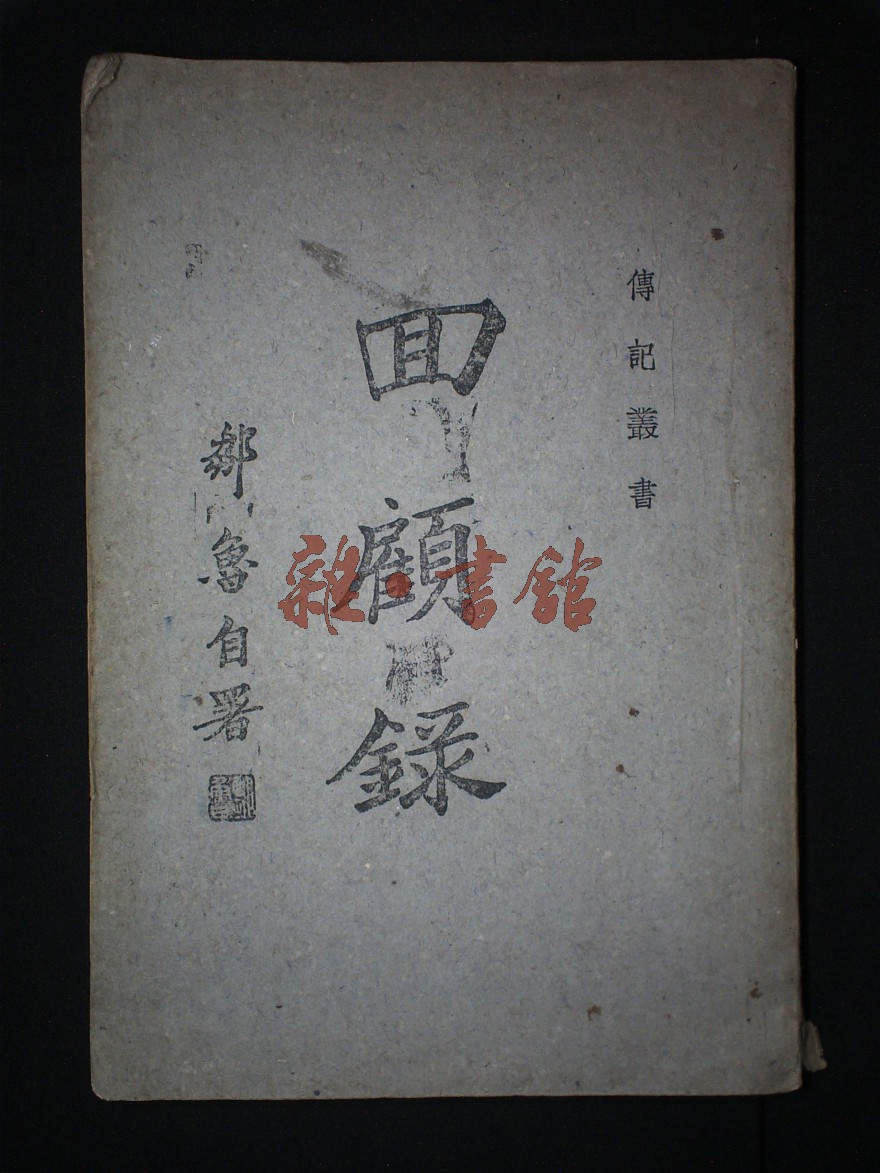 傳記叢書
回顧錄
鄒魯自署
雜·書館